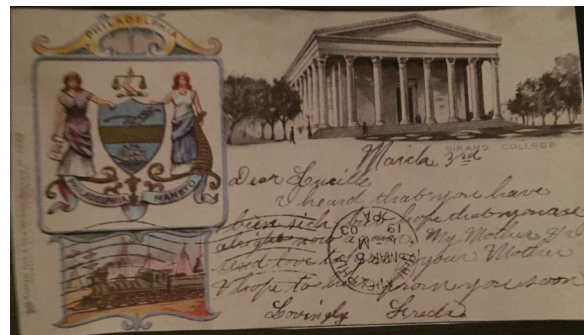 PHILADELPHIA
PHILADELPHIA MANETO
GIRARD COLLEGE
March 3rd
Dear Lucille
I heard that you have
been sick but hope that you are
alright now again. My Mother and I
send love to you and your Mother
I hope to hear from you soon
Lovingly Freda